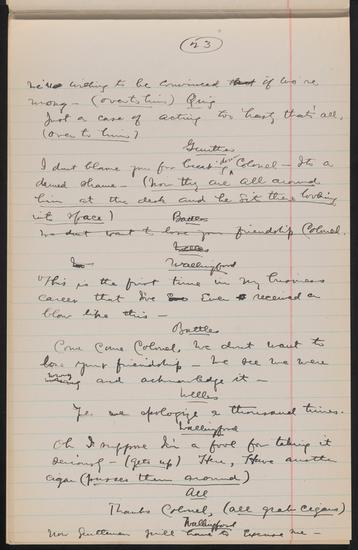 23
We're willing to be convinced if we're
wrong — (over to him) Quig
Just a case of acting too hasty that's all,
(over to him)
I dont blame you for being Colonel — Its a
damed shame — (Now they are all around
him at the desk and he sits there looking
into space)
Battles
We dont want to lose your friendship Colonel.
Wallingford
This is the first time in my business
career that I've Ever received a
blow like this —
Battles
Come Come Colonel, We dont want to
lose your friendship — We see we were
wrong and acknowledge it —
Welles
Yes we apologize a thousand times.
Wallingford
Oh I suppose I'm a fool for taking it
seriously — (gets up) Here, Have another
cigar (passes them around)
All
Thanks Colonel, (all grab cigars)
Wallingford
Now Gentlemen you'll have to excuse me —